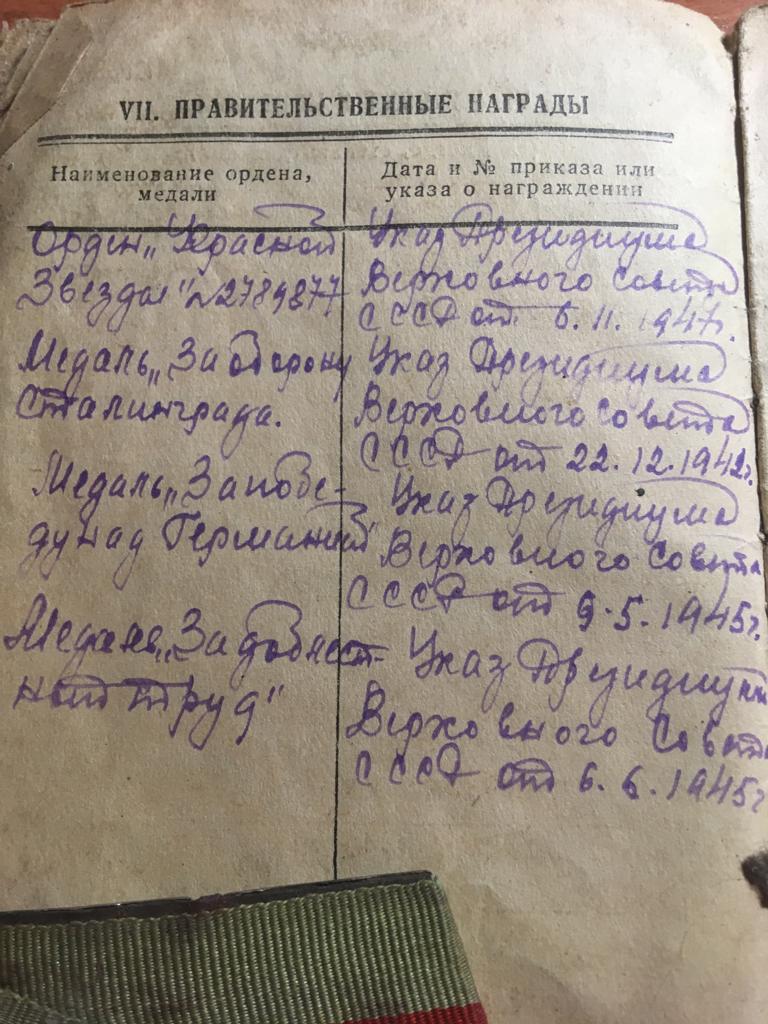 VII. ПРАВИТЕЛЬСТВЕННЫЕ НАГРАДЫ
Наименование ордена,
медали
Дата и № приказа или
указа о награждении
Орден „Красной
Звезды" № 2789877
Указ Президиума
Верховного Совета
СССР от 6.11.1947г.
Медаль „За оборону
Сталинграда.
Указ Президиума
Верховного Совета
СССР от 22.12.1942г.
Медаль „За побе-
ду над Германией"
Указ Президиума
Верховного Совета
СССР от 9.5.1945г.
Медаль „За доблест-
ный труд"
Указ Президиума
Верховного Совета
СССР от 6.6.1945г